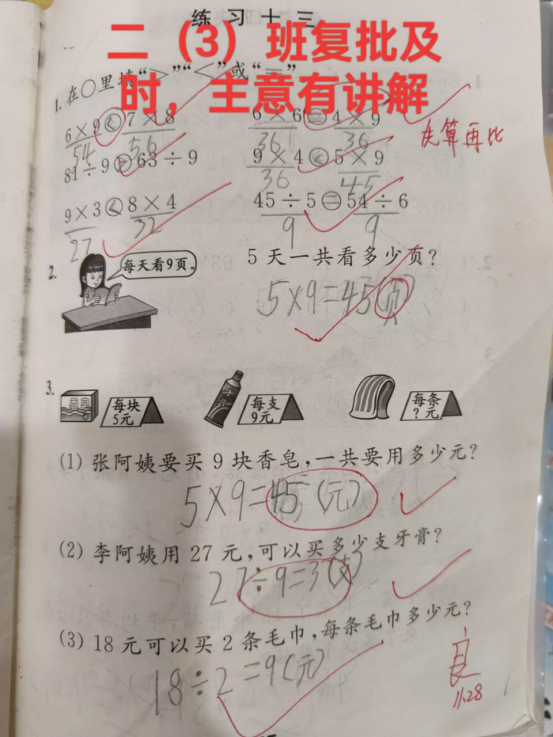 练习十三
二（3）班复批及
时，主意有讲解
1. 在○里填“>”“<”或“=”
6×9<7×8 6×6=4×9
54 56 36 36
先算再比
81÷9>63÷9 9×4<5×9
36 45
9×3<8×4 45÷5=54÷6
27 32 9 9
2. 每天看9页。 5天一共看多少页？
5×9=45(页)
3. 每块5元 每支9元 每条?元
(1) 张阿姨要买9块香皂，一共要用多少元？
5×9=45(元)
(2) 李阿姨用27元，可以买多少支牙膏？
27÷9=3(支)
(3) 18元可以买2条毛巾，每条毛巾多少元？
18÷2=9(元)
良
11.28